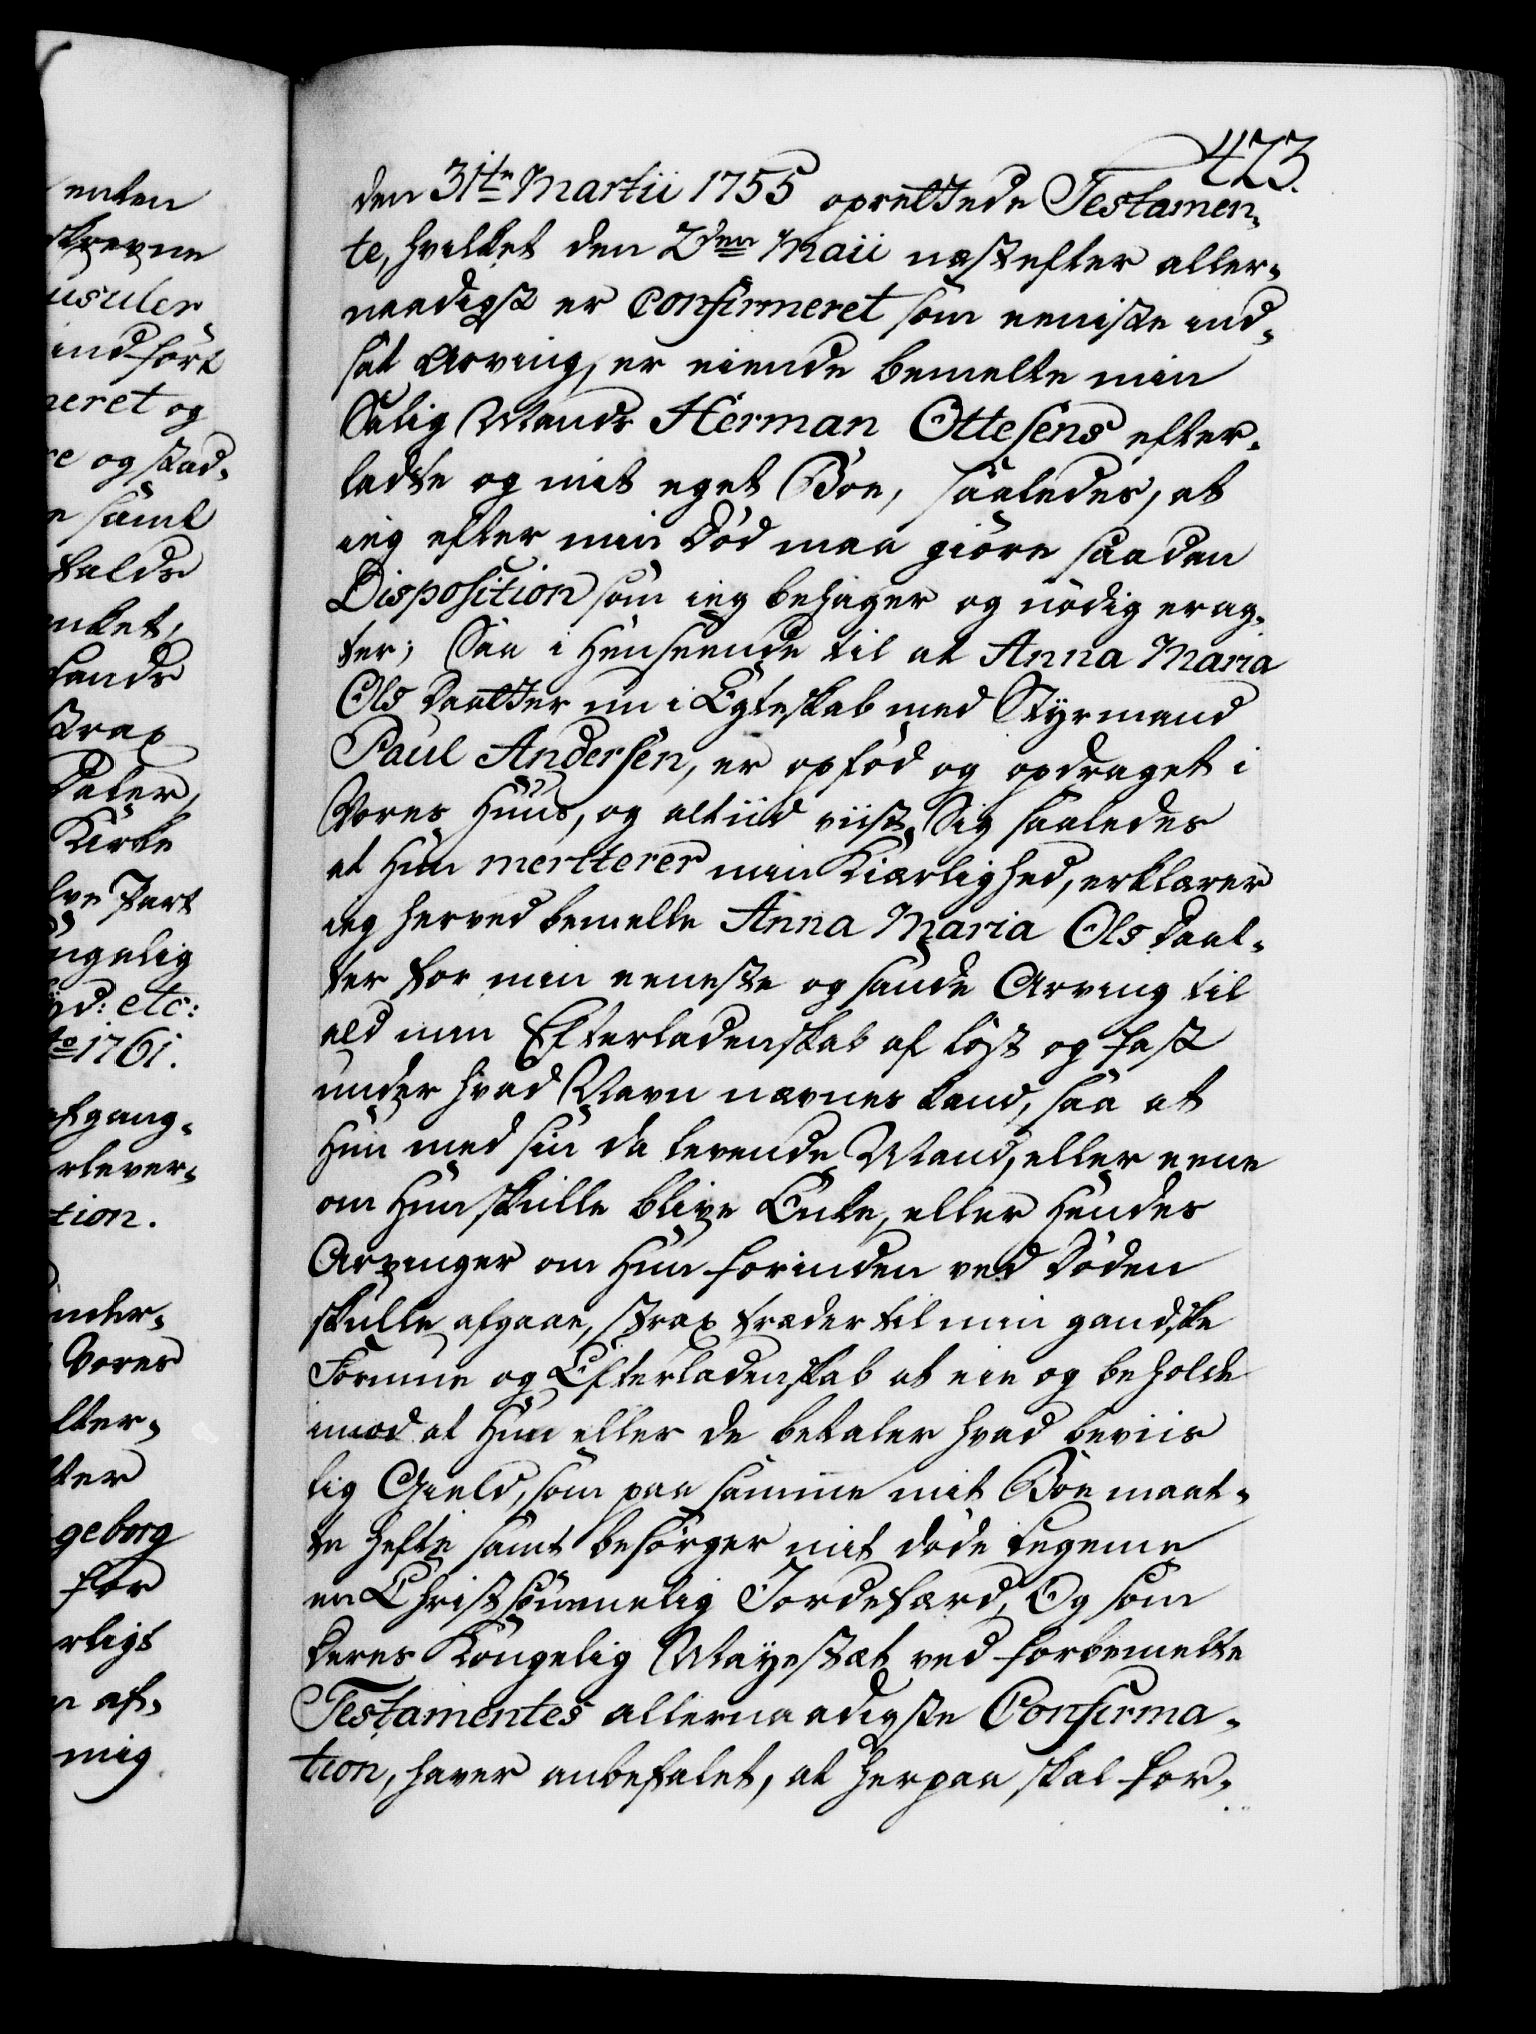 enten
skrevne
usuler
indført
neret og
re og stad-
e samt
falds
nket,
hands
strax
Daler,
Kirke
lve Part
ngelig
yd: etc:
to 1761.
afgang-
rlever-
tion.
inder-
Vores
lter-
ter
geborg
for
rligt
n af-
mig
423.
den 31te Martii 1755 oprettede Testamen-
te, hvilket den 2den Maii næstefter aller-
naadigst er Confirmeret som eeniste ind-
sat Arving, er eiende bemelte min
Salig Mands Herman Ottesens efter-
ladte og mit eget Boe, saaledes, at
ieg efter min Død maa giøre saadan
Disposition som ieg behager og nødig erag-
ter; Saa i Henseende til at Anna Maria
Ols Daatter nu i Egteskab med Styrmand
Paul Andersen, er opfød og opdraget i
Vores Huus, og altiid viist Sig saaledes
at Hun meriterer min Kiærlighed, erklærer
ieg herved bemelte Anna Maria Ols Daat-
ter for min eeneste og sande Arving til
ald min Efterladenskab af løst og fast
under hvad Navn nævnes kand, saa at
Hun med sin da levende Mand, eller eene
om Hun skulle blive Enke, eller Hendes
Arvinger om Hun forinden ved Døden
skulle afgaae, strax træder til min gandske
Formue og Efterladenskab at eie og beholde
imod at Hun eller de betaler hvad beviis
lig Gield, som paa samme mit Boe maat-
te hefte samt besørger mit døde Legeme
en Christsømmelig Jordefærd, Og som
Deres Kongelig Mayestæt ved forbemelte
Testamentes allernaadigste Confirma-
tion, haver anbefalet, at herpaa skal for-